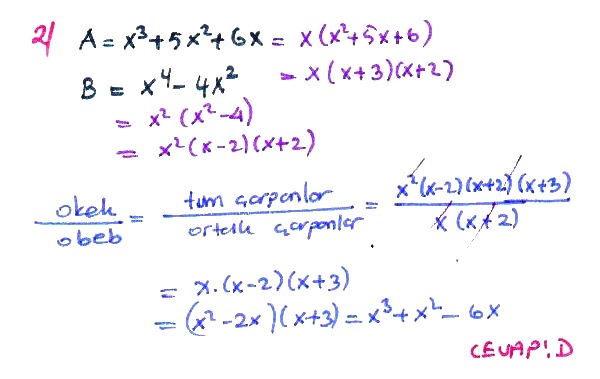 2/ A = x³+5x²+6x = x(x²+5x+6)
= x(x+3)(x+2)
B = x⁴-4x²
= x²(x²-4)
= x²(x-2)(x+2)
okek/obeb = tüm çarpanlar/ortak çarpanlar = x²(x-2)(x+2)(x+3)/x(x+2)
= x.(x-2)(x+3)
= (x²-2x)(x+3) = x³+x²-6x
CEVAP: D